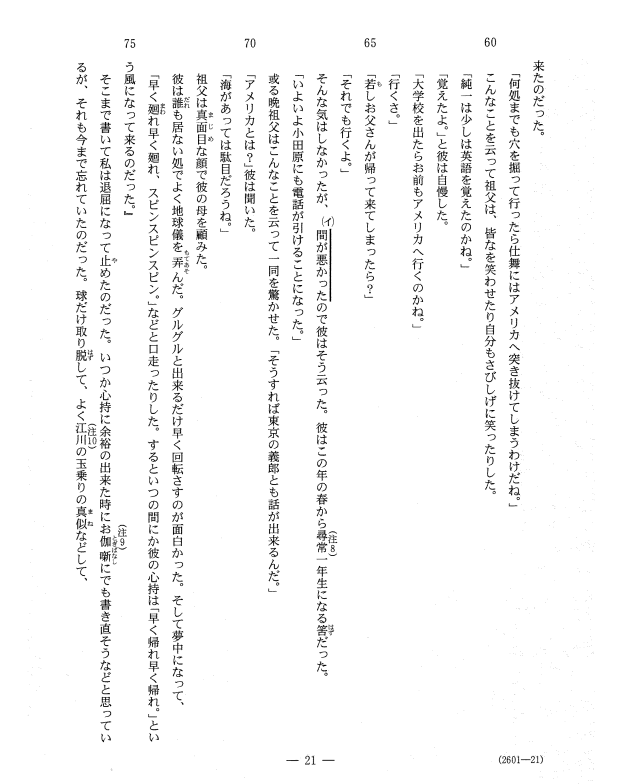 来たのだった。
「何処までも穴を掘って行ったら仕舞にはアメリカへ突き抜けてしまうわけだね。」
60
こんなことを云って祖父は、皆なを笑わせたり自分もさびしげに笑ったりした。
「純一は少しは英語を覚えたのかね。」
「覚えたよ。」と彼は自慢した。
「大学校を出たらお前もアメリカへ行くのかね。」
「行くさ。」
「若しお父さんが帰って来てしまったら?」
も
65
「それでも行くよ。」
そんな気はしなかったが、(イ)間が悪かったので彼はそう云った。彼はこの年の春から尋常一年生になる筈だった。
(注8)
はず
「いよいよ小田原にも電話が引けることになった。」
或る晩祖父はこんなことを云って一同を驚かせた。「そうすれば東京の義郎とも話が出来るんだ。」
「アメリカとは?」彼は聞いた。
70
「海があっては駄目だろうね。」
祖父は真面目な顔で彼の母を顧みた。
まじめ
彼は誰も居ない処でよく地球儀を弄んだ。グルグルと出来るだけ早く回転さすのが面白かった。そして夢中になって、
だれ
もてあそ
「早く廻れ早く廻れ、スピンスピンスピン。」などと口走ったりした。するといつの間にか彼の心持は「早く帰れ早く帰れ。」とい
まわ
う風になって来るのだった。』
75
そこまで書いて私は退屈になって止めたのだった。いつか心持に余裕の出来た時にお伽噺にでも書き直そうなどと思ってい
や
(注9)
とぎばなし
るが、それも今まで忘れていたのだった。球だけ取り脱して、よく江川の玉乗りの真似などして、
はず
(注10)
まね
— 21 —
(2601—21)